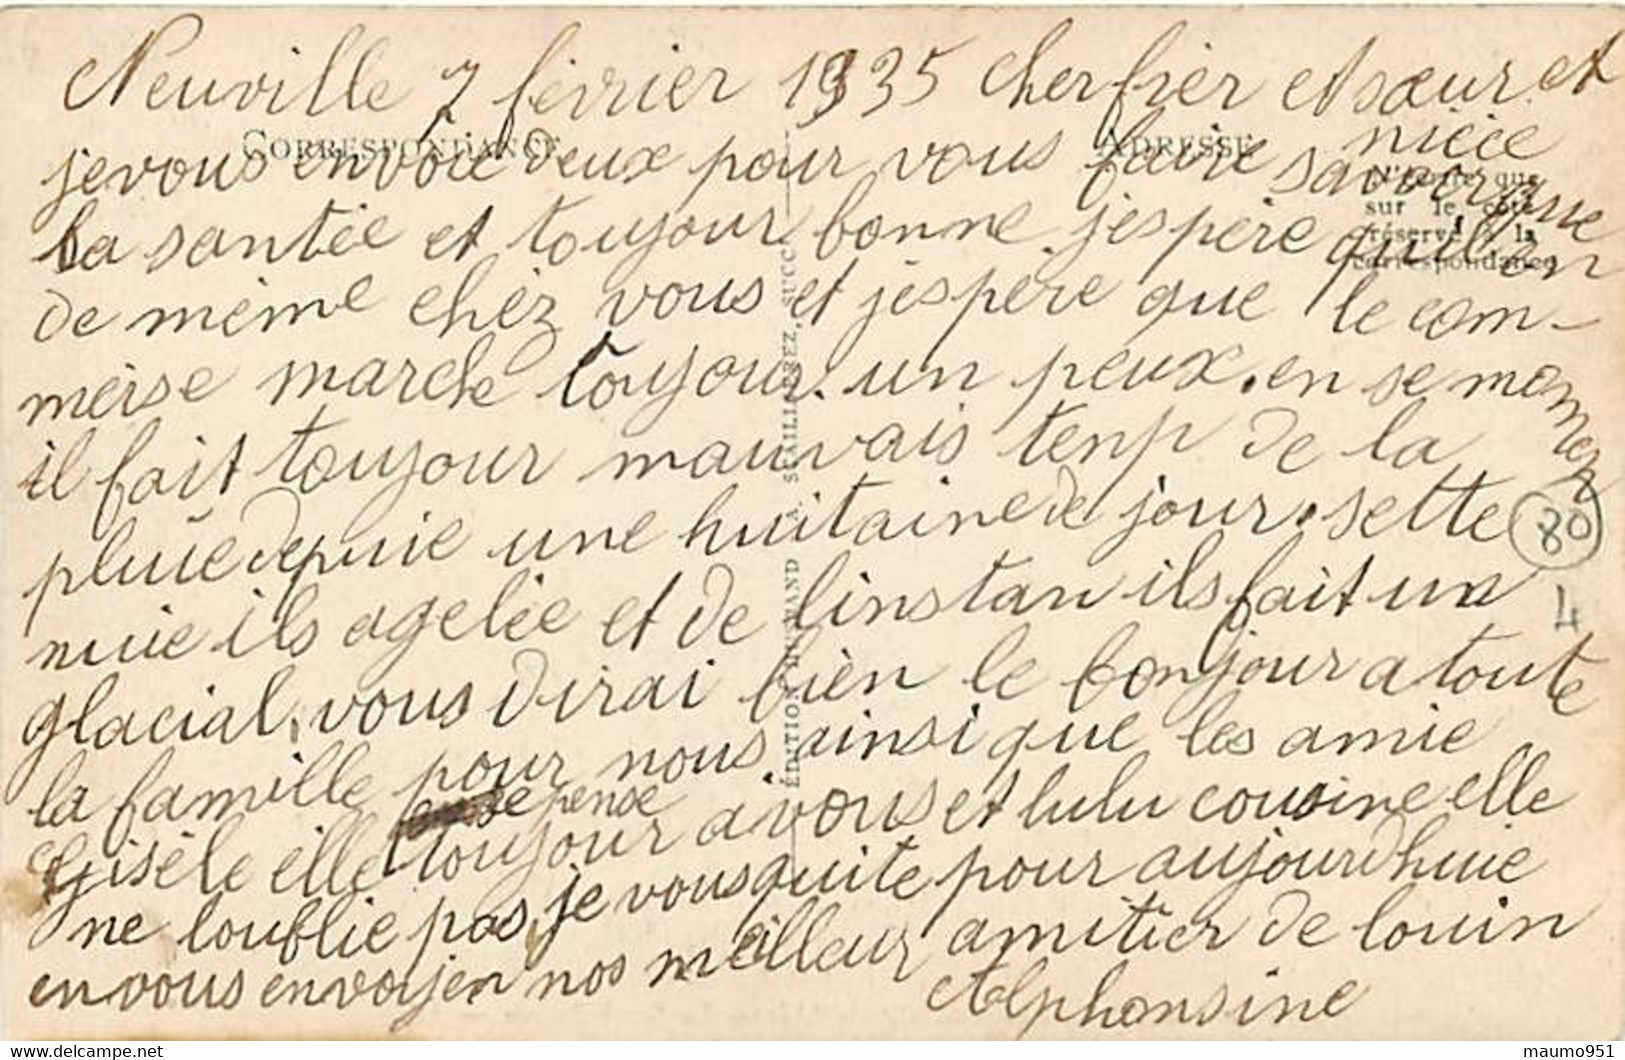 Neuville 7 février 1935 cher frèr et sœur et
nièce
CORRESPONDANCE
ADRESSE
je vous envoie deux pour vous faire savoir que
N'écrire que
sur le côté
réservé à la
correspondance
la santée et toujour bonne. j'espère quil en
de mème chéz vous et j'espère que le com-
merse marche toujour. un peux. en se momen
il fait toujour mauvais tenp de la
pluie depuie une huitaine de jour. sette
nuie ils agelée et de linstan ils fait un
glacial, vous dirai bien le bonjour a toute
la famille pour nous ainsi que les amie
Gisèle elle pense toujour a vous et lulu cousine elle
ne loublie pas, je vous quite pour aujourdhuie
en vous envoyen nos meilleur amitier de louin
Alphonsine
80
4
ÉDITION SUCC
maumo951